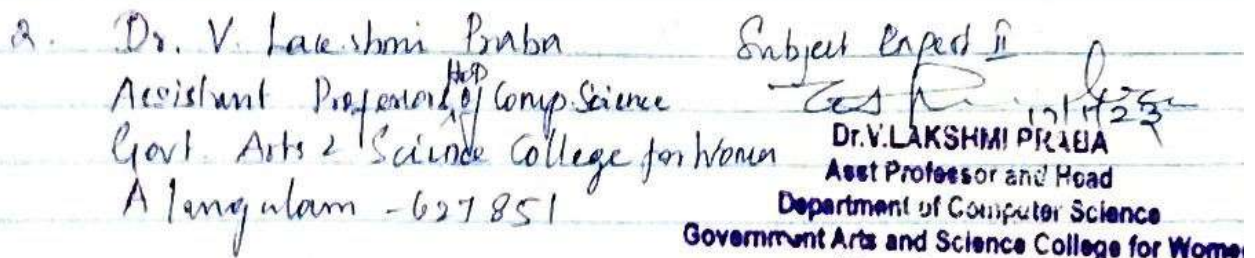 2. Dr. V. Lakshmi Praba Subject Expert II
Assistant Professor & HOD of Comp. Science 17/1/23
Govt. Arts & Science College for Women
Alangulam - 627851
Dr.V.LAKSHMI PRABA
Asst Professor and Head
Department of Computer Science
Government Arts and Science College for Women